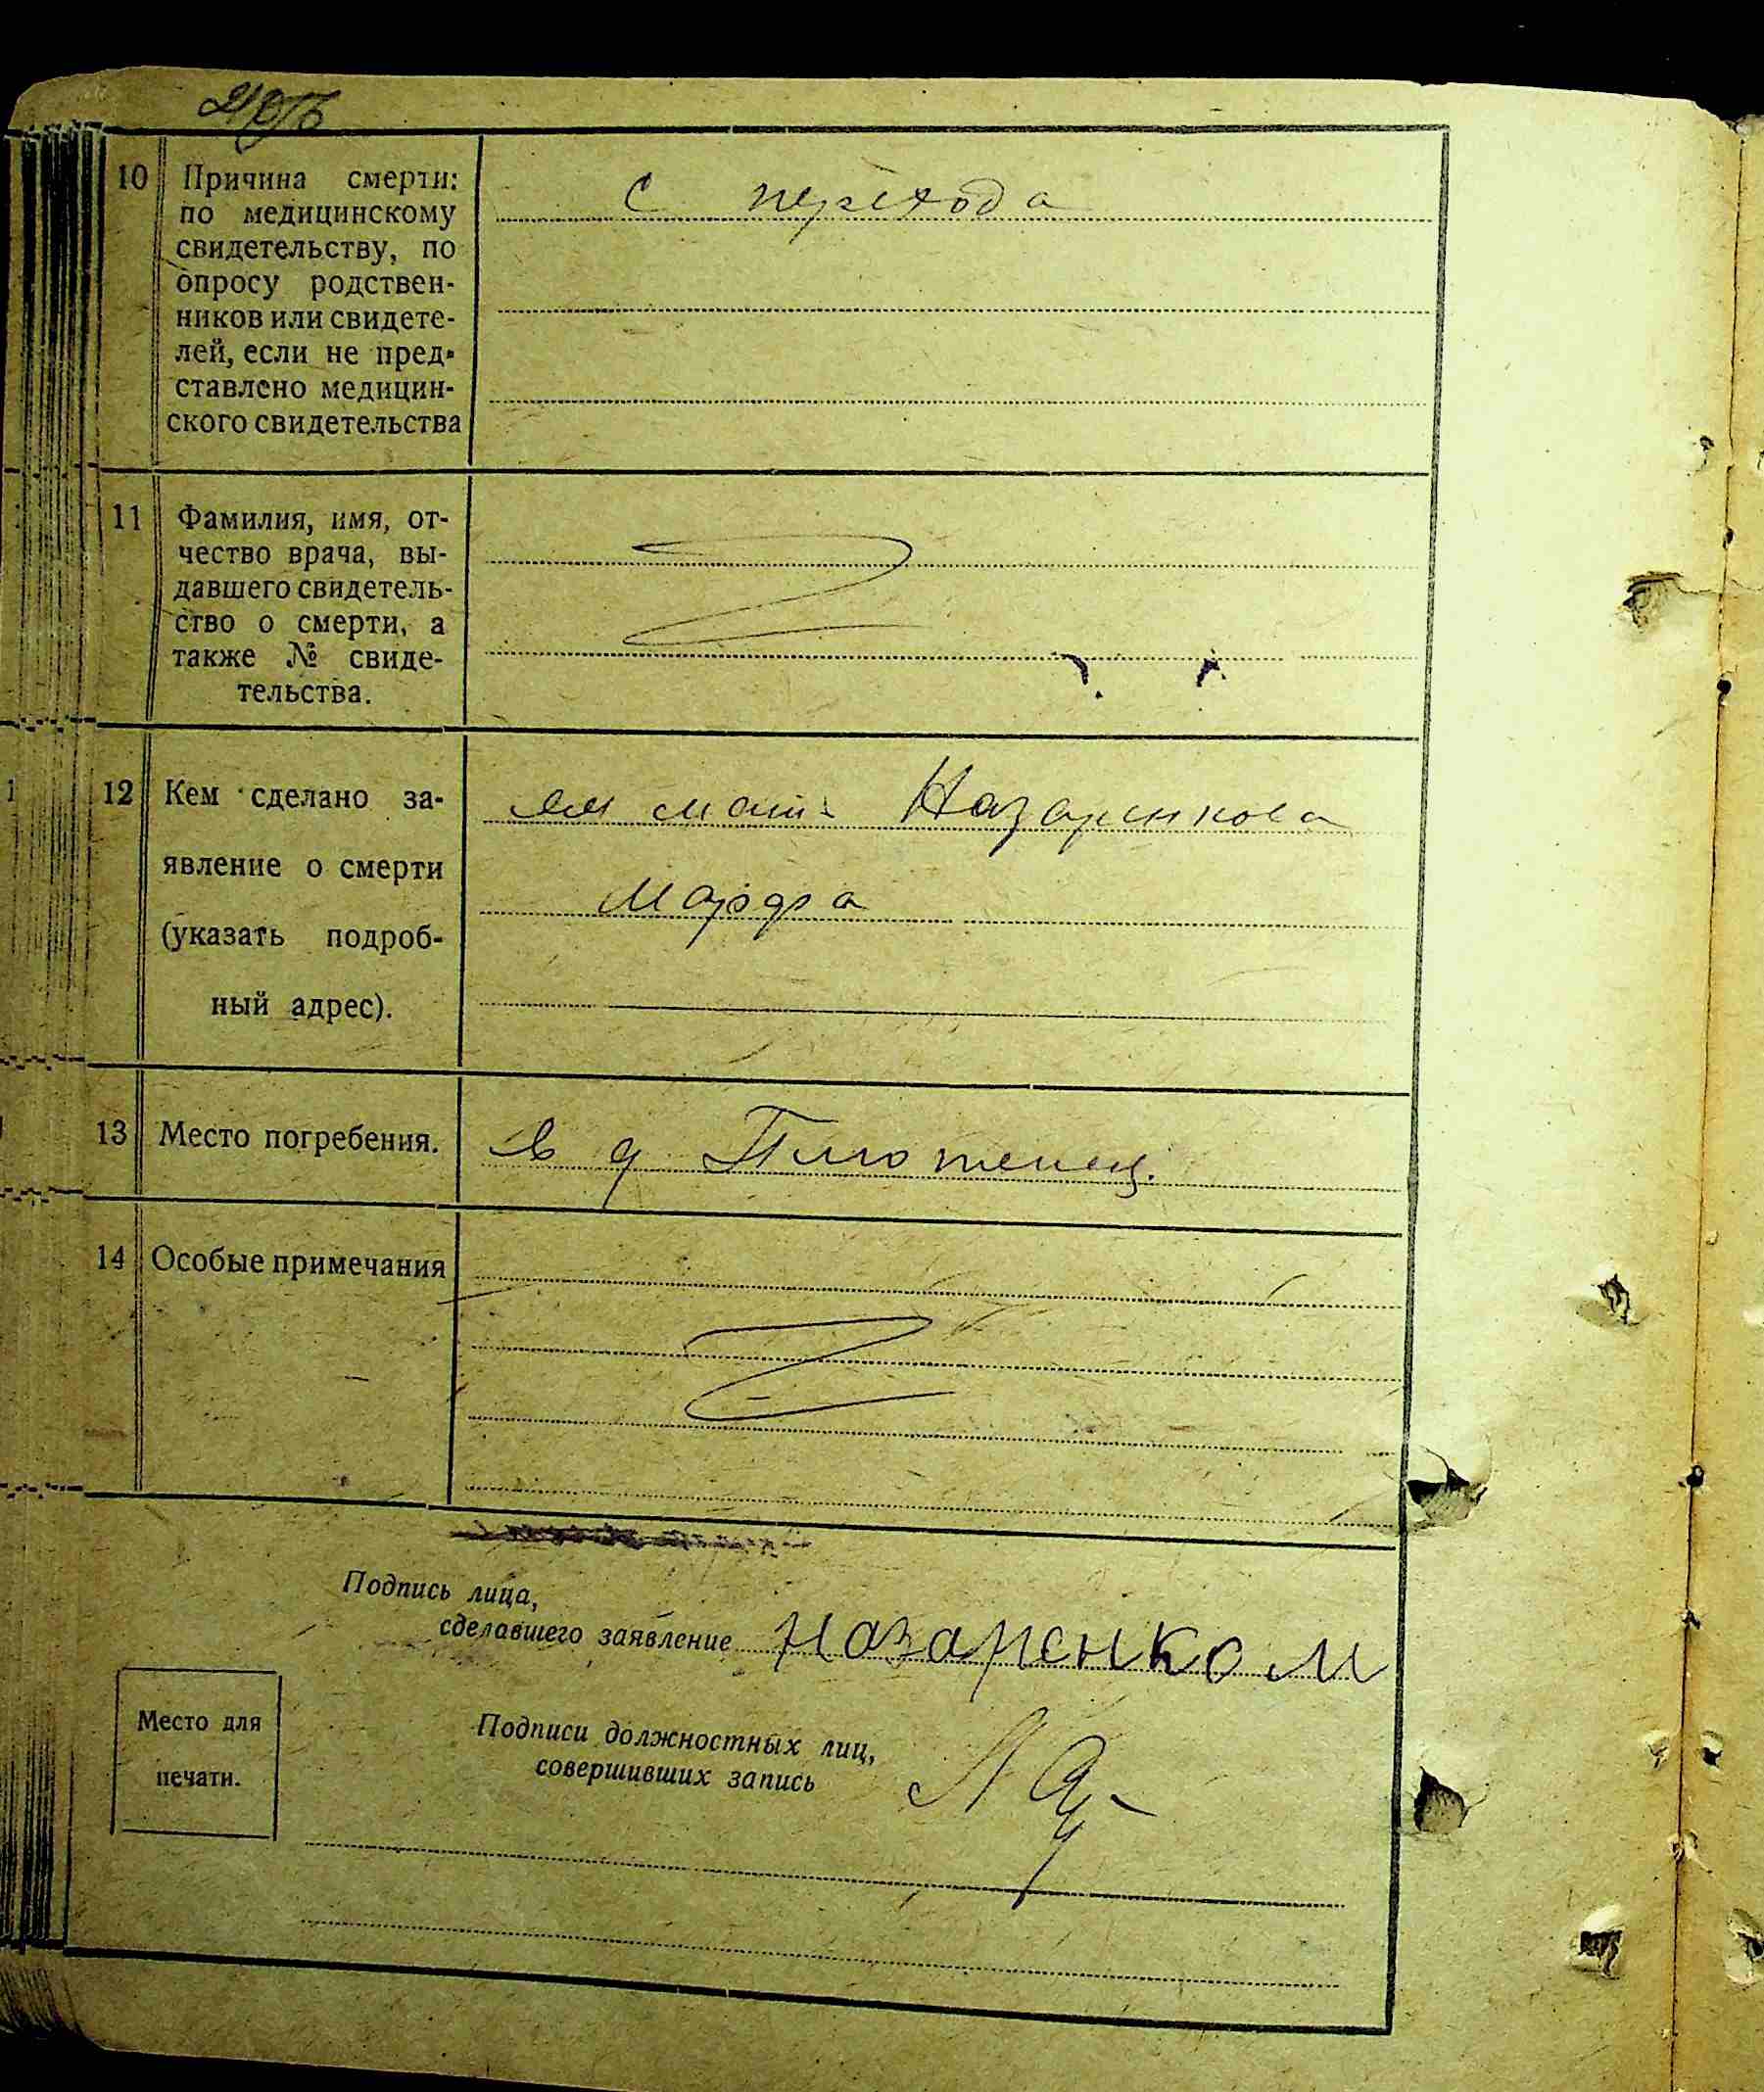 10 Причина смерти: с перехода
по медицинскому
свидетельству, по
опросу родствен-
ников или свидете-
лей, если не пред-
ставлено медицин-
ского свидетельства
11 Фамилия, имя, от-
чество врача, вы-
давшего свидетель-
ство о смерти, а
также № свиде-
тельства.
12 Кем сделано за- мать Назаренкова
явление о смерти Марфа
(указать подроб-
ный адрес).
13 Место погребения. в д
14 Особые примечания
Подпись лица,
сделавшего заявление Назаренко М
Место для
печати.
Подписи должностных лиц,
совершивших запись